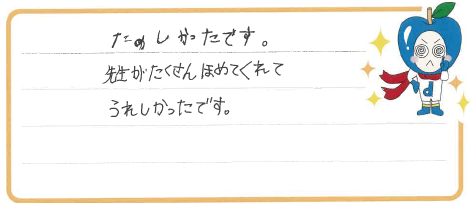 たのしかったです。
先生がたくさんほめてくれて
うれしかったです。
d